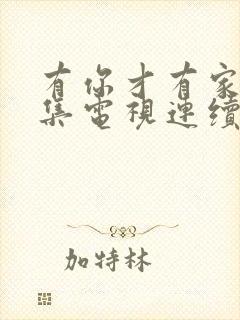 有你才有家
集電視連續
加特林